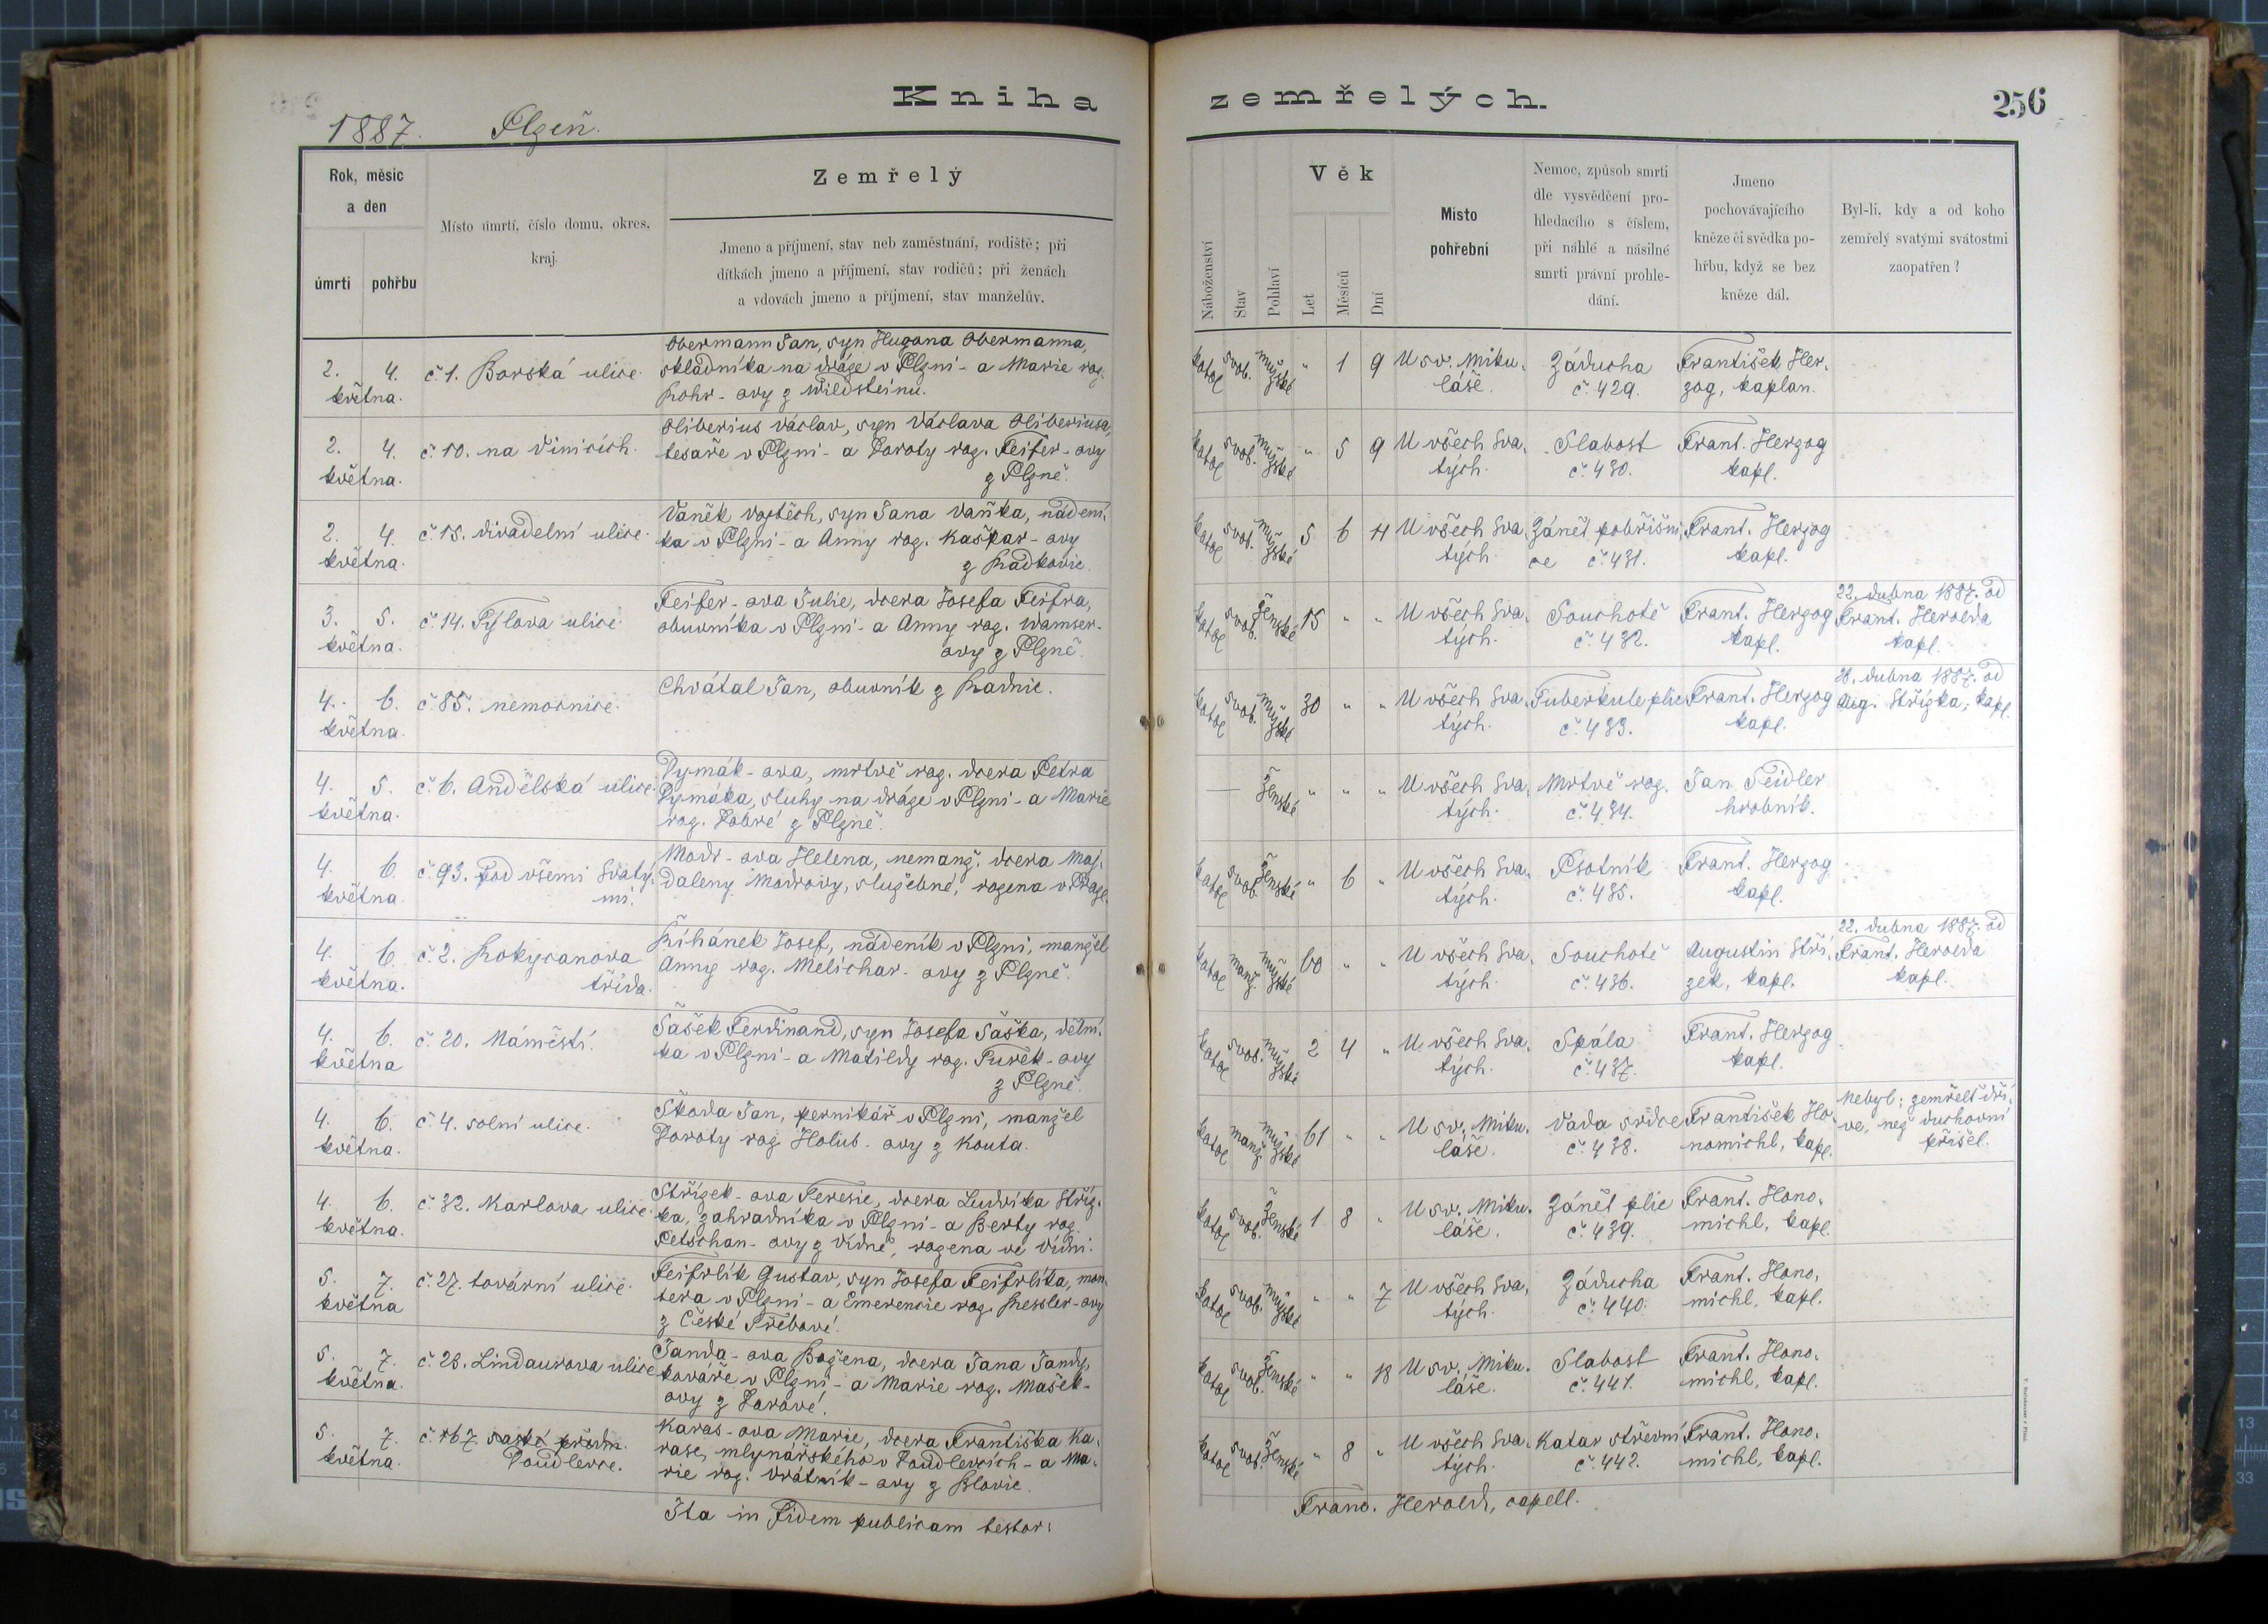 Kniha zemřelých.
256
1887. Plzeň.
Rok, měsíc
a den
úmrtí
pohřbu
Místo úmrtí, číslo domu, okres,
kraj.
Zemřelý
Jmeno a příjmení, stav neb zaměstnání, rodiště; při
dítkách jmeno a příjmení, stav rodičů; při ženách
a vdovách jmeno a příjmení, stav manželův.
Náboženství
Stav
Pohlaví
Věk
Let
Měsíců
Dní
Místo
pohřební
Nemoc, způsob smrti
dle vysvědčení pro-
hledacího s číslem,
při náhlé a násilné
smrti právní prohle-
dání.
Jmeno
pochovávajícího
kněze či svědka po-
hřbu, když se bez
kněze dál.
Byl-li, kdy a od koho
zemřelý svatými svátostmi
zaopatřen?
2. 4.
května.
č. 1. Borská ulice.
Obermann Jan, syn Hugona Obermanna,
skladníka na dráze v Plzni - a Marie roz.
Rohr - ovy z Wildsteinu.
katol svob. mužské " 1 9
U sv. Miku-
láše.
Záducha
č. 429.
František Her-
zog, kaplan.
2. 4.
května.
č. 10. na Vinicích.
Oliberius Václav, syn Václava Oliberiusa,
tesaře v Plzni - a Doroty roz. Feifer - ovy
z Plzně.
katol svob. mužské " 5 9
U všech Sva-
tých.
Slabost
č. 430.
Frant. Herzog
kapl.
2. 4.
května.
č. 15. divadelní ulice.
Vaněk Vojtěch, syn Jana Vaňka, nádení-
ka v Plzni - a Anny roz. Kašpar - ovy
z Radkovic.
katol svob. mužské 5 6 11
U všech Sva-
tých.
Zánět pobřišni-
ce č. 431.
Frant. Herzog
kapl.
3. 5.
května.
č. 14. Tylova ulice.
Feifer - ova Julie, dcera Josefa Feifra,
obuvníka v Plzni - a Anny roz. Wamser-
ovy z Plzně.
katol svob. ženské 15 " "
U všech Sva-
tých.
Souchotě
č. 432.
Frant. Herzog
kapl.
22. dubna 1887. od
Frant. Herolda
kapl.
4. 6.
května.
č. 85. nemocnice.
Chvátal Jan, obuvník z Radnic.
katol svob. mužské 30 " "
U všech Sva-
tých.
Tuberkule plic
č. 433.
Frant. Herzog
kapl.
28. dubna 1887. od
Aug. Střízka, kapl.
4. 5.
května.
č. 6. Andělská ulice.
Dymák - ova, mrtvě roz. dcera Petra
Dymáka, sluhy na dráze v Plzni - a Marie
roz. Dobré z Plzně.
— ženské " " "
U všech Sva-
tých.
Mrtvě roz.
č. 434.
Jan Seidler
hrobník.
4. 6.
května.
č. 93. Pod všemi Svatý-
mi.
Modr - ova Helena, nemanž. dcera Maj-
daleny Modrovy, služebné, rozena v Praze.
katol svob. ženské " 6 "
U všech Sva-
tých.
Psotník
č. 435.
Frant. Herzog
kapl.
4. 6.
května.
č. 2. Rokycanova
třída.
Říhánek Josef, nádeník v Plzni, manžel
Anny roz. Melichar - ovy z Plzně.
katol manž. mužské 60 " "
U všech Sva-
tých.
Souchotě
č. 436.
Augustin Stří-
zek, kapl.
22. dubna 1887. od
Frant. Herolda
kapl.
4. 6.
května
č. 20. Náměstí.
Šašek Ferdinand, syn Josefa Šaška, dělní-
ka v Plzni - a Matildy roz. Turek - ovy
z Plzně.
katol svob. mužské 2 4 "
U všech Sva-
tých.
Spála
č. 437.
Frant. Herzog
kapl.
4. 6.
května.
č. 4. solní ulice.
Škoda Jan, pernikář v Plzni, manžel
Doroty roz Holub - ovy z Kouta.
katol manž. mužské 61 " "
U sv. Miku-
láše.
Vada srdce
č. 438.
František Ho-
nomichl, kapl.
Nebyl; zemřelť dří-
ve, než duchovní
přišel.
4. 6.
května.
č. 32. Karlova ulice.
Střízek - ova Teresie, dcera Ludvíka Stříz-
ka, zahradníka v Plzni - a Berty roz.
Petschan - ovy z Vídně, rozena ve Vídni.
katol svob. ženské 1 8 "
U sv. Miku-
láše.
Zánět plic
č. 439.
Frant. Hono-
michl, kapl.
5. 7.
května
č. 27. tovární ulice.
Feifrlík Gustav, syn Josefa Feifrlíka, mon-
tera v Plzni - a Emerencie roz. Ressler - ovy
z České Třebové.
katol svob. mužské " " 7
U všech Sva-
tých.
Záducha
č. 440.
Frant. Hono-
michl, kapl.
5. 7.
května.
č. 28. Lindaurova ulice
Janda - ova Božena, dcera Jana Jandy,
kováře v Plzni - a Marie roz. Mašek-
ovy z Borové.
katol svob. ženské " " 18
U sv. Miku-
láše.
Slabost
č. 441.
Frant. Hono-
michl, kapl.
5. 7.
května.
č. 167. saské předm.
Doudlevce.
Karas - ova Marie, dcera Františka Ka-
rase, mlynářského v Doudlevcích - a Ma-
rie roz. Vrátník - ovy z Blovic.
katol svob. ženské " 8 "
U všech Sva-
tých.
Katar střevní
č. 442.
Frant. Hono-
michl, kapl.
Ita in Fidem publicam testor:
Franc. Herold, capell.